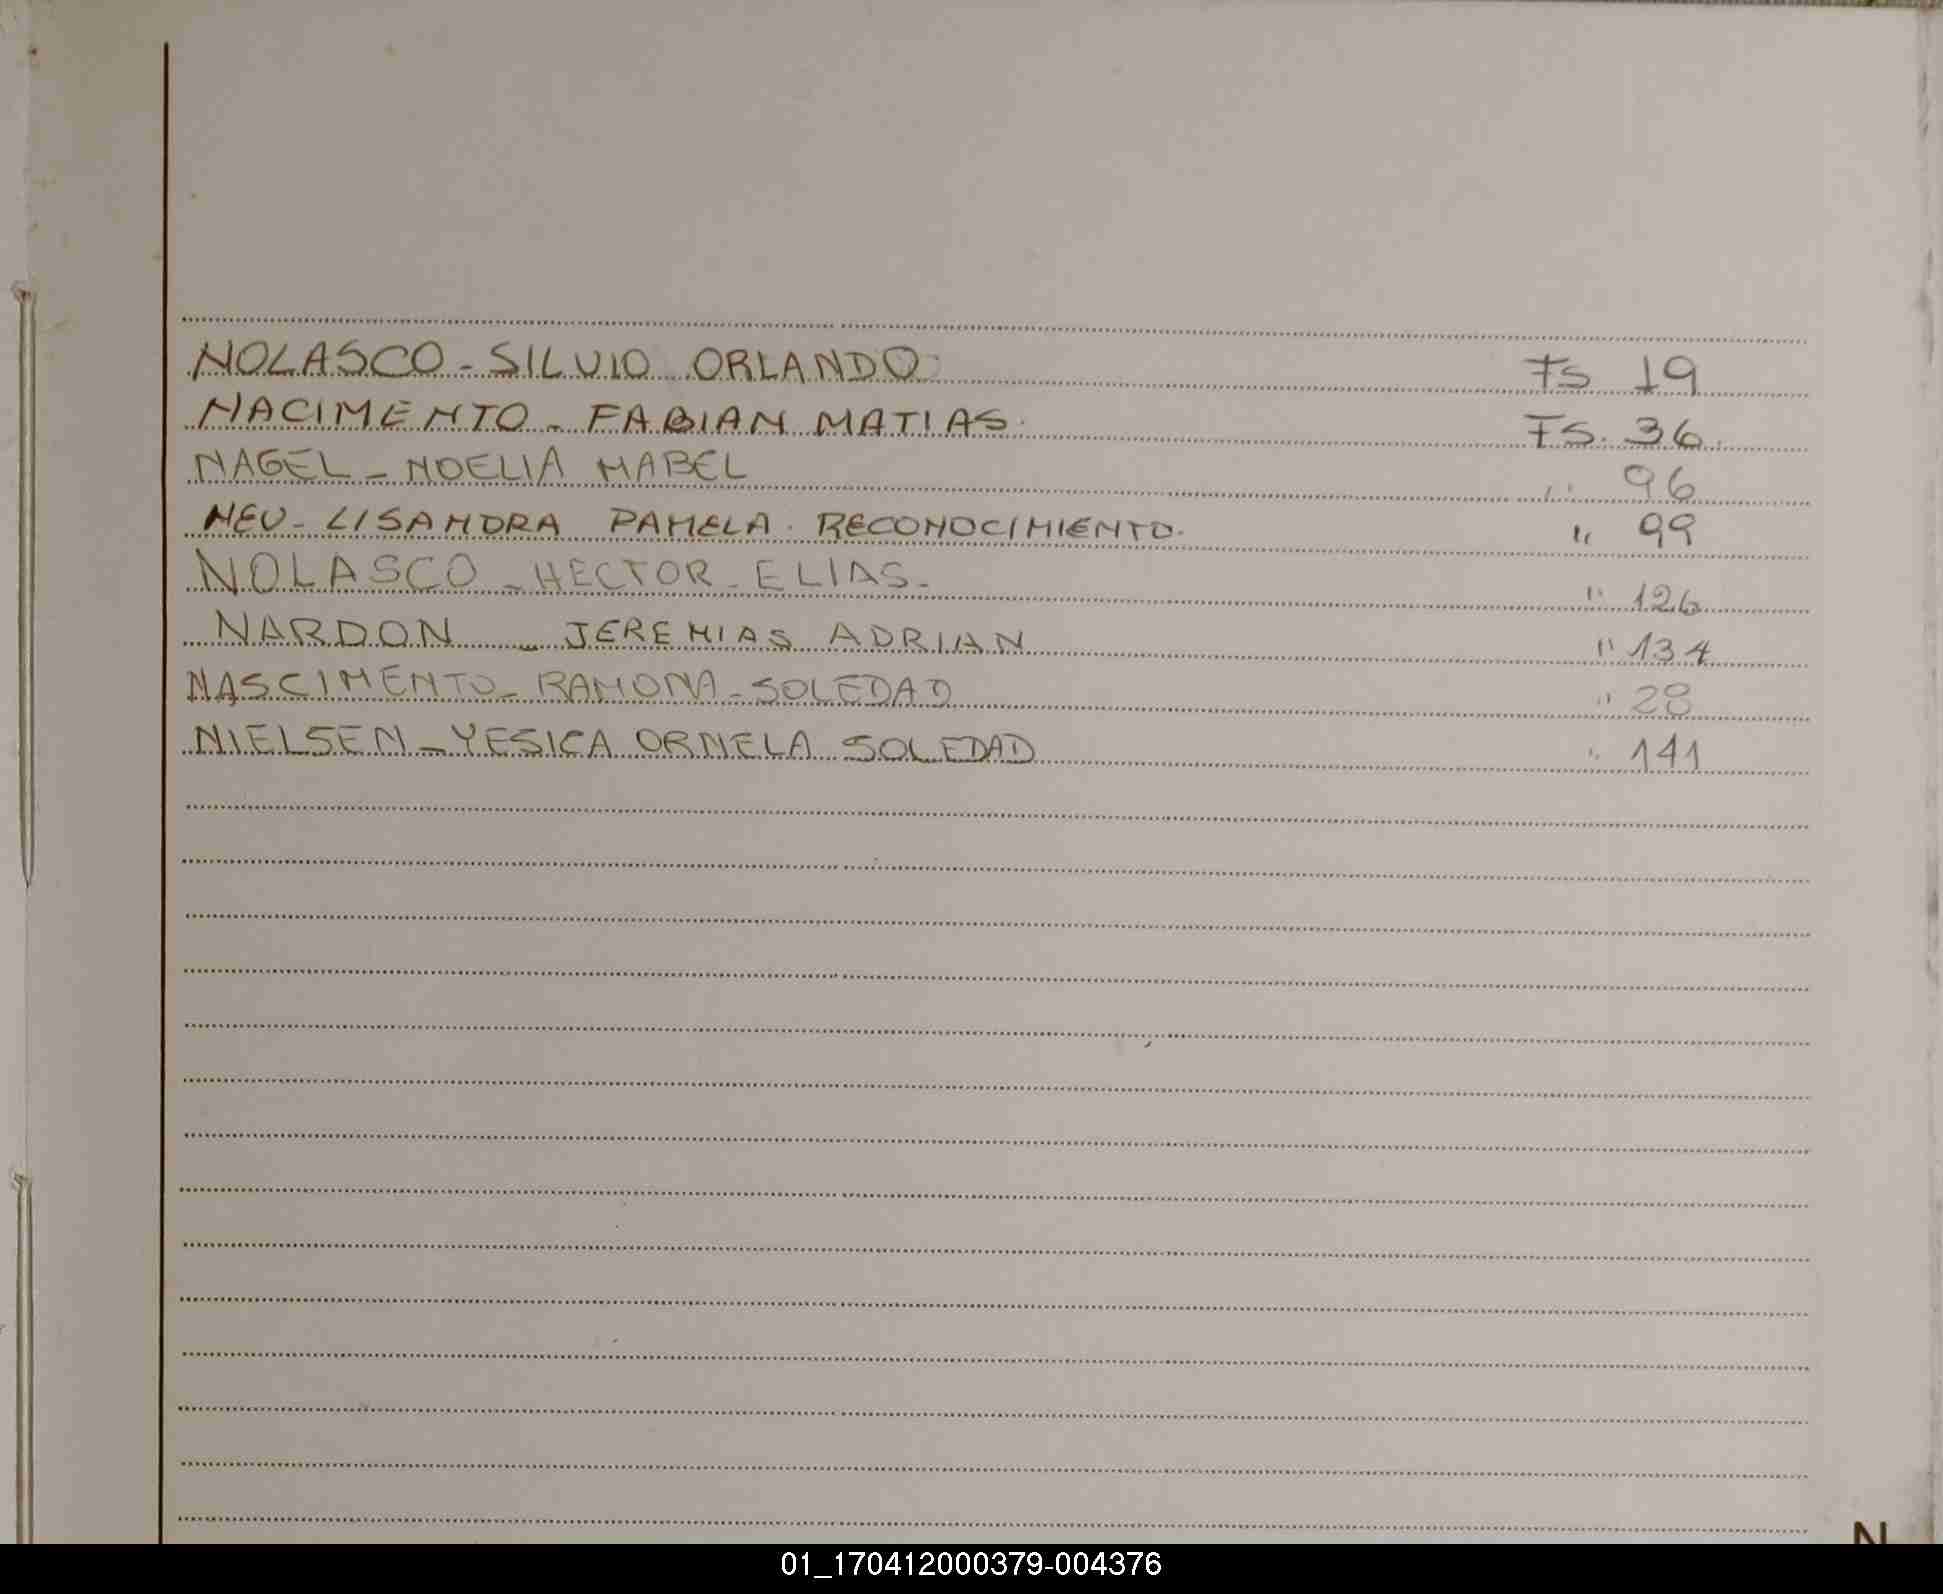 NOLASCO - SILVIO ORLANDO Fs 19
NACIMENTO - FABIAN MATIAS. Fs. 36.
NAGEL - NOELIA MABEL " 96
NEU - LISANDRA PAMELA. RECONOCIMIENTO. " 99
NOLASCO - HECTOR - ELIAS. " 126
NARDON - JEREMIAS ADRIAN " 134
NASCIMENTO - RAMONA - SOLEDAD " 28
NIELSEN - YESICA ORNELA SOLEDAD " 141
N
01_170412000379-004376